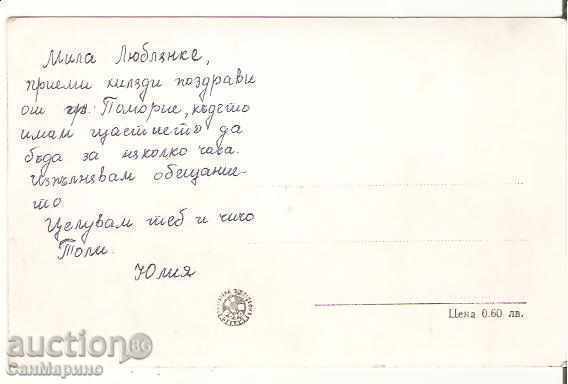 Мила Люблянке,
приеми хиляди поздрави
от гр. Поморие, където
имам щастието да
бъда за няколко часа.
Изпълнявам обещание-
то
Целувам теб и чичо
Толи.
Юлия
Цена 0.60 лв.
auction BG
СанМарино